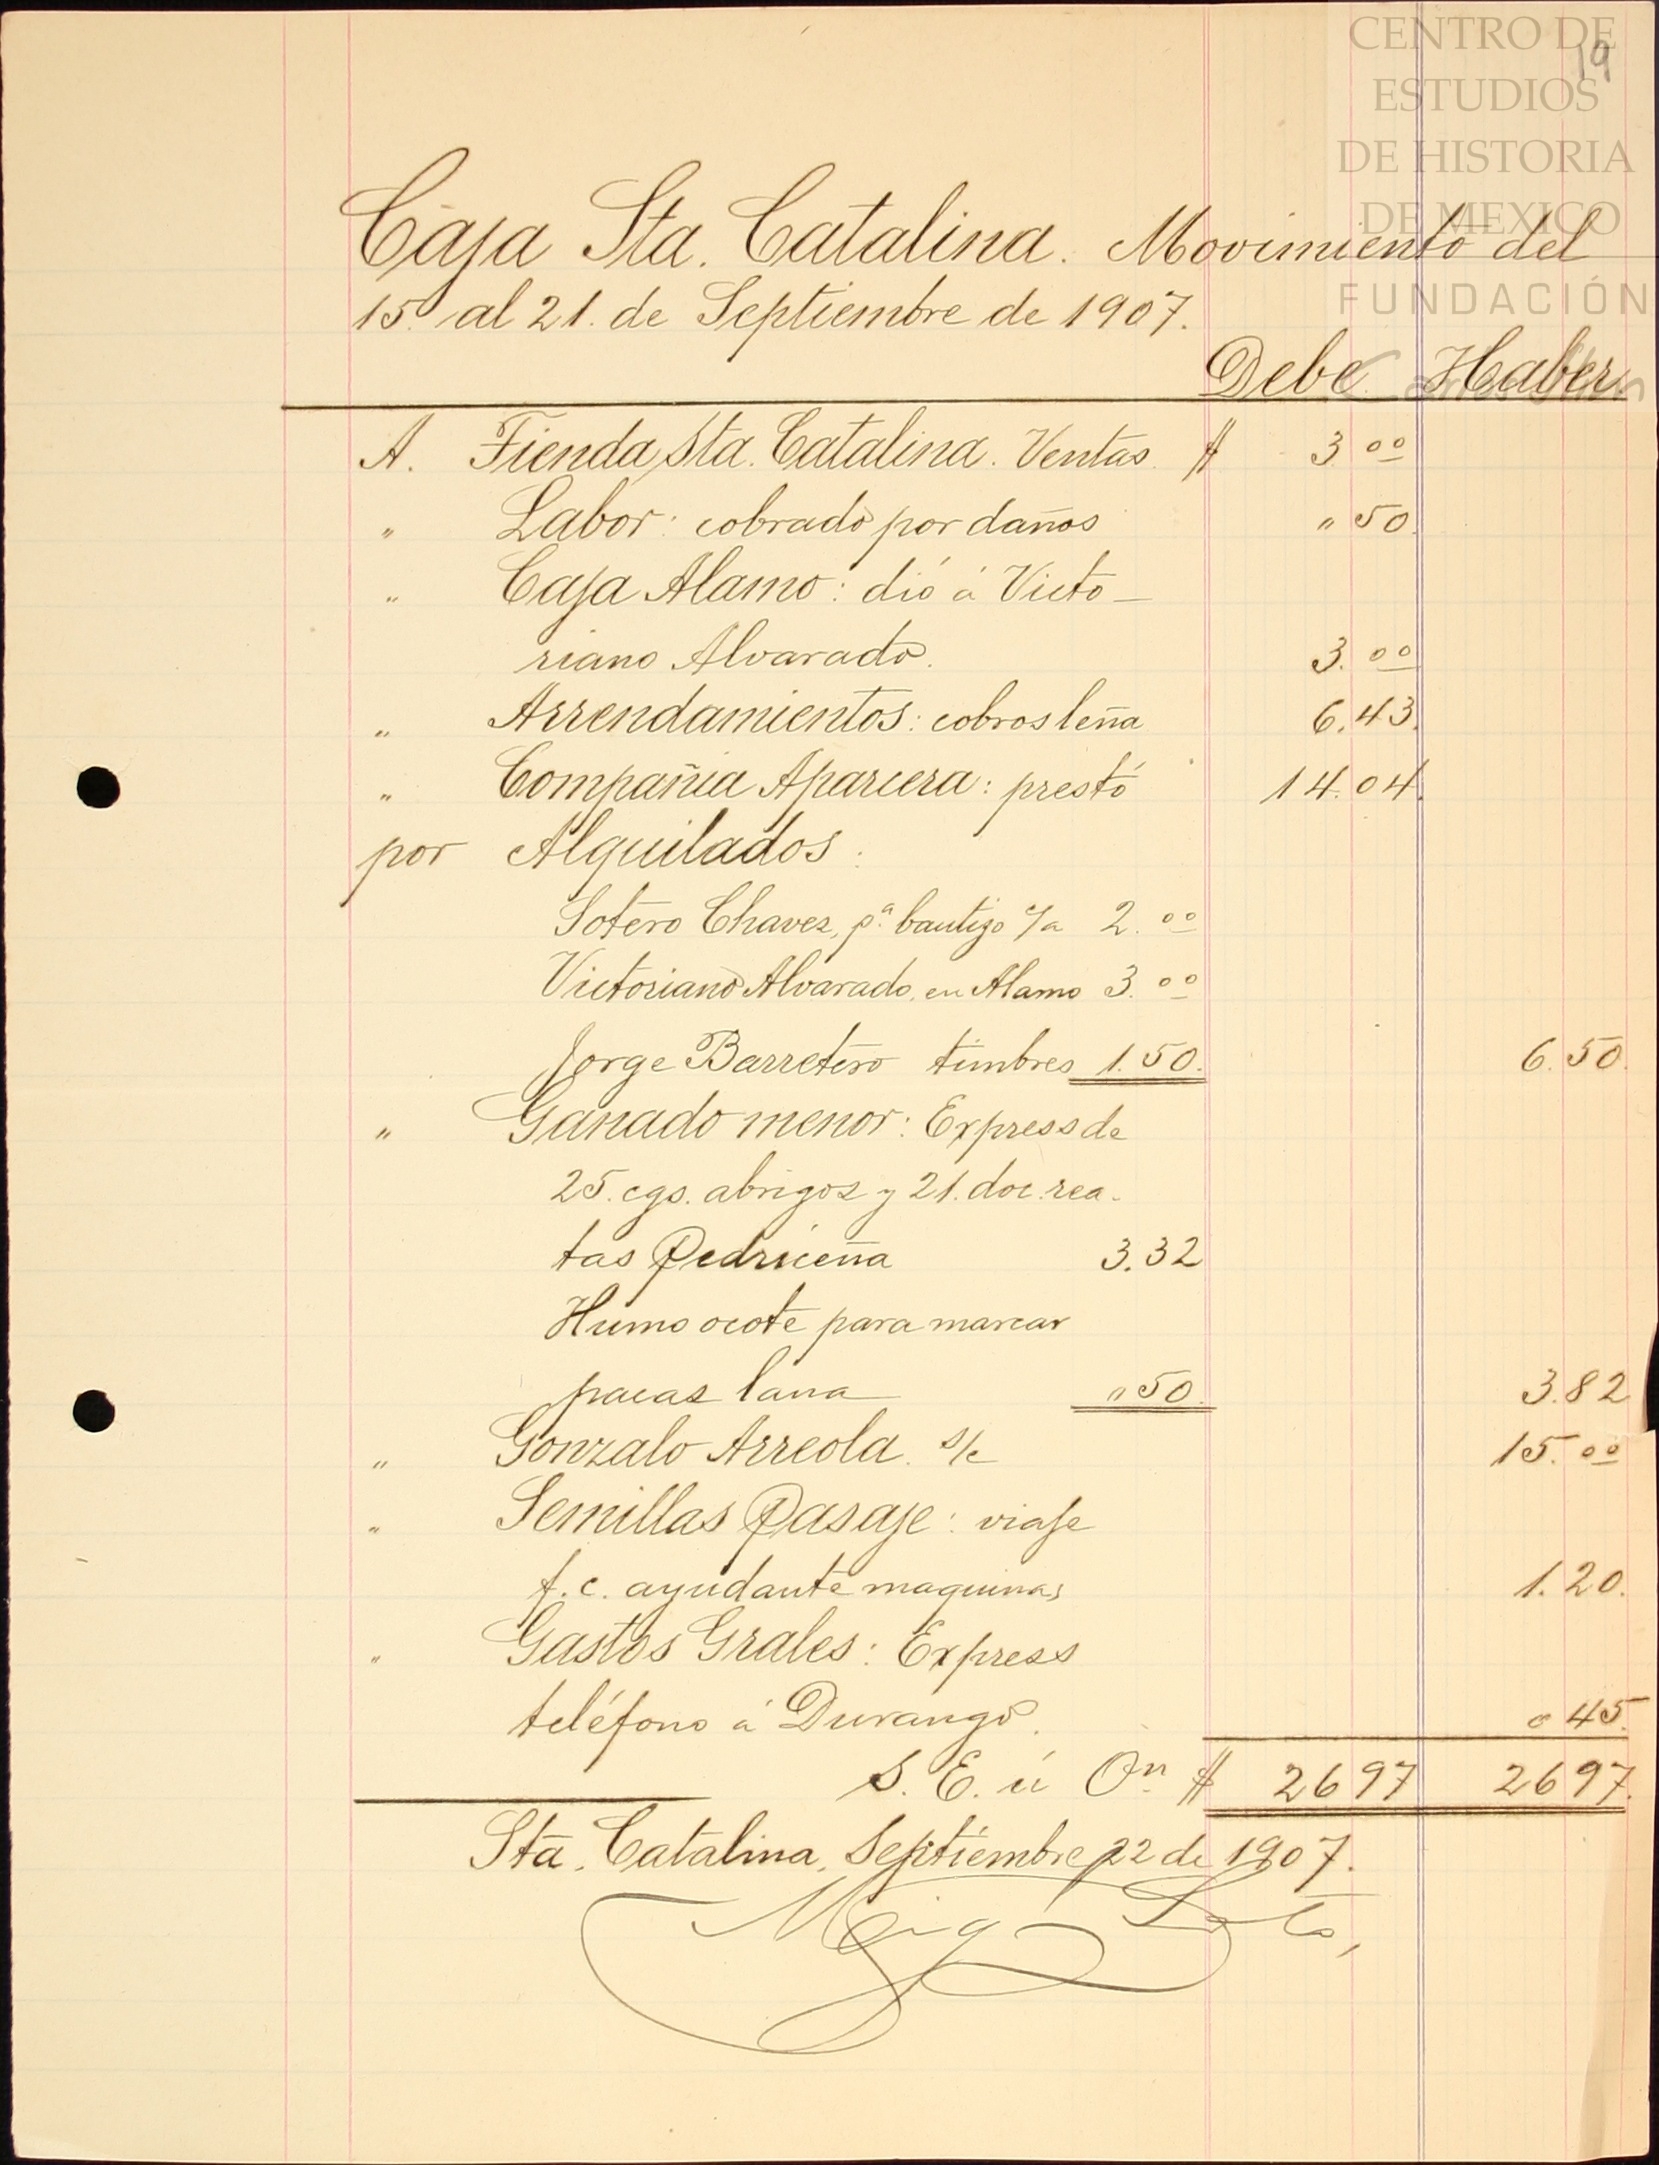 CENTRO DE
ESTUDIOS
DE HISTORIA
DE MEXICO
FUNDACIÓN
19
Caja Sta. Catalina. Movimiento del
15. al 21. de Septiembre de 1907.
Debe Haber
A. Tienda Sta. Catalina. Ventas $ 3 00
" Labor: cobrado por daños " 50
" Caja Alamo: dió á Victo-
riano Alvarado. 3. 00
" Arrendamientos: cobros leña 6.43.
" Compañia Aparcera: prestó 14.04.
por Alquilados:
Sotero Chavez, pª. bautizo c/a 2. 00
Victoriano Alvarado, en Alamo 3. 00
Jorge Barretero timbres 1.50. 6.50.
" Ganado menor: Express de
25. cgs. abrigos y 21. doc. rea-
tas Pedriceña 3.32
Humo ocote para marcar
pacas lana " 50. 3.82
" Gonzalo Arreola. s/c 15. 00
" Semillas Pasaje: viaje
f.c. ayudante maquinas 1.20.
" Gastos Grales: Express
teléfono á Durango. " 45.
S. E. ú On. $ 2697 2697.
Sta. Catalina, Septiembre 22 de 1907.